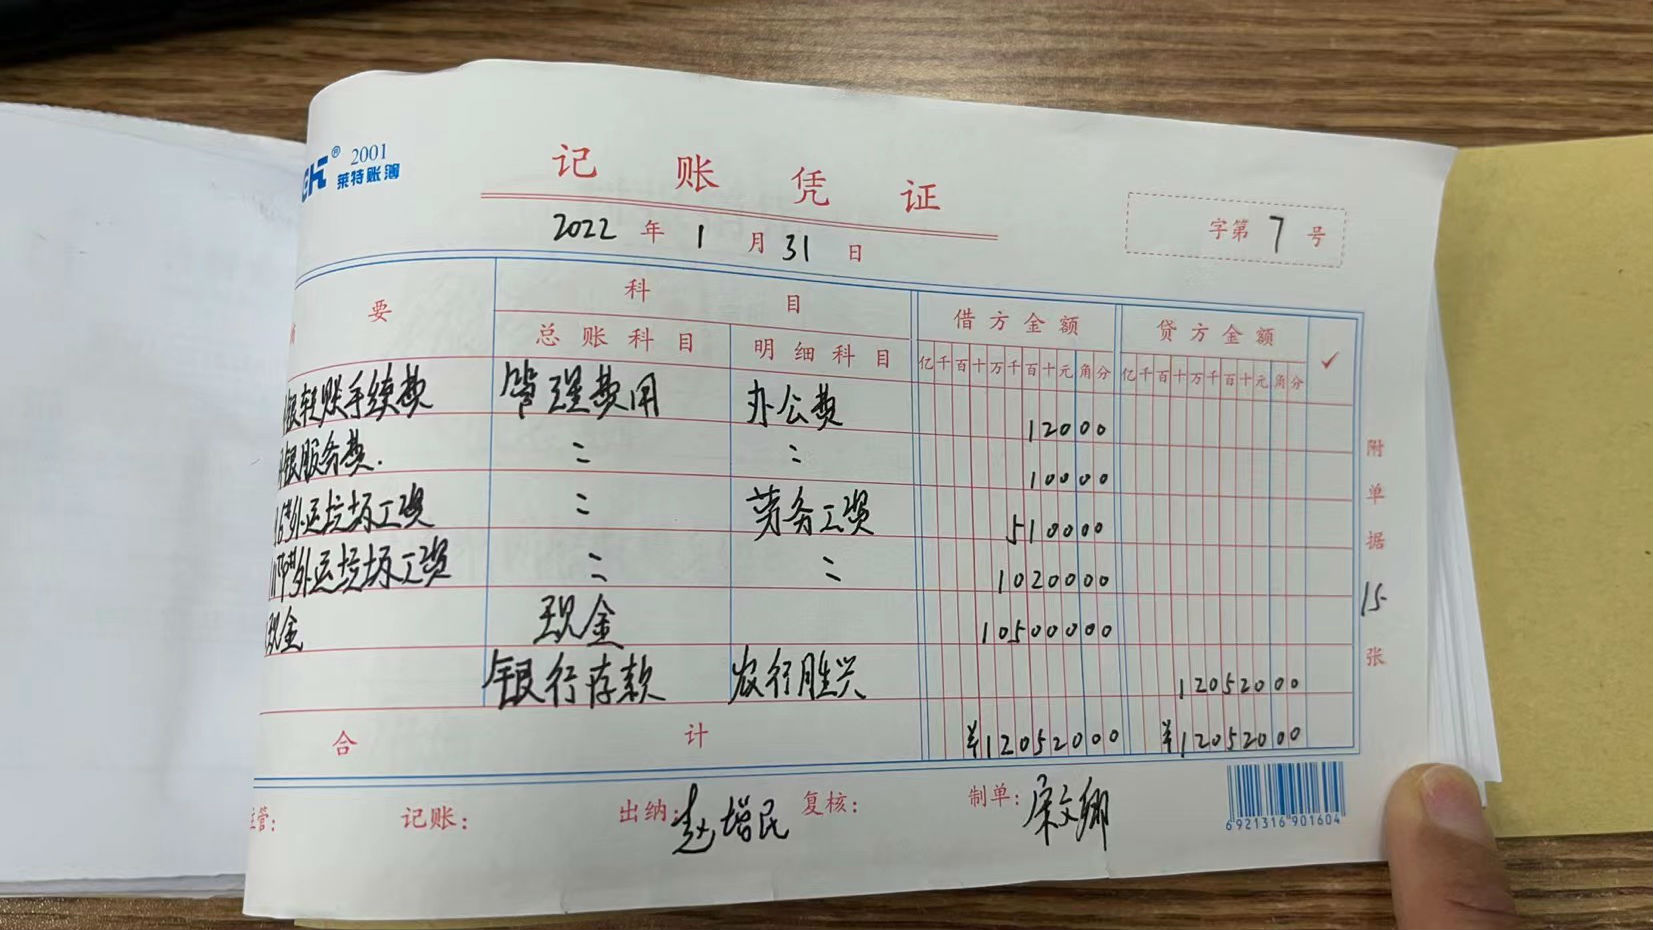 ® 2001
莱特账簿
记账凭证
2022 年 1 月 31 日
字第 7 号
要 科目 借方金额 贷方金额 ✓
总账科目 明细科目 亿千百十万千百十元角分 亿千百十万千百十元角分
转账手续费 管理费用 办公费 12000
银服务费. 〃 〃 10000
外运垃圾工资 〃 劳务工资 510000
外运垃圾工资 〃 〃 1020000
现金 现金 10500000
银行存款 农行胜兴 12052000
合计 ¥12052000 ¥12052000
附单据 15 张
主管: 记账: 出纳: 赵增民 复核: 制单: 宋文卿
6 921316 901604